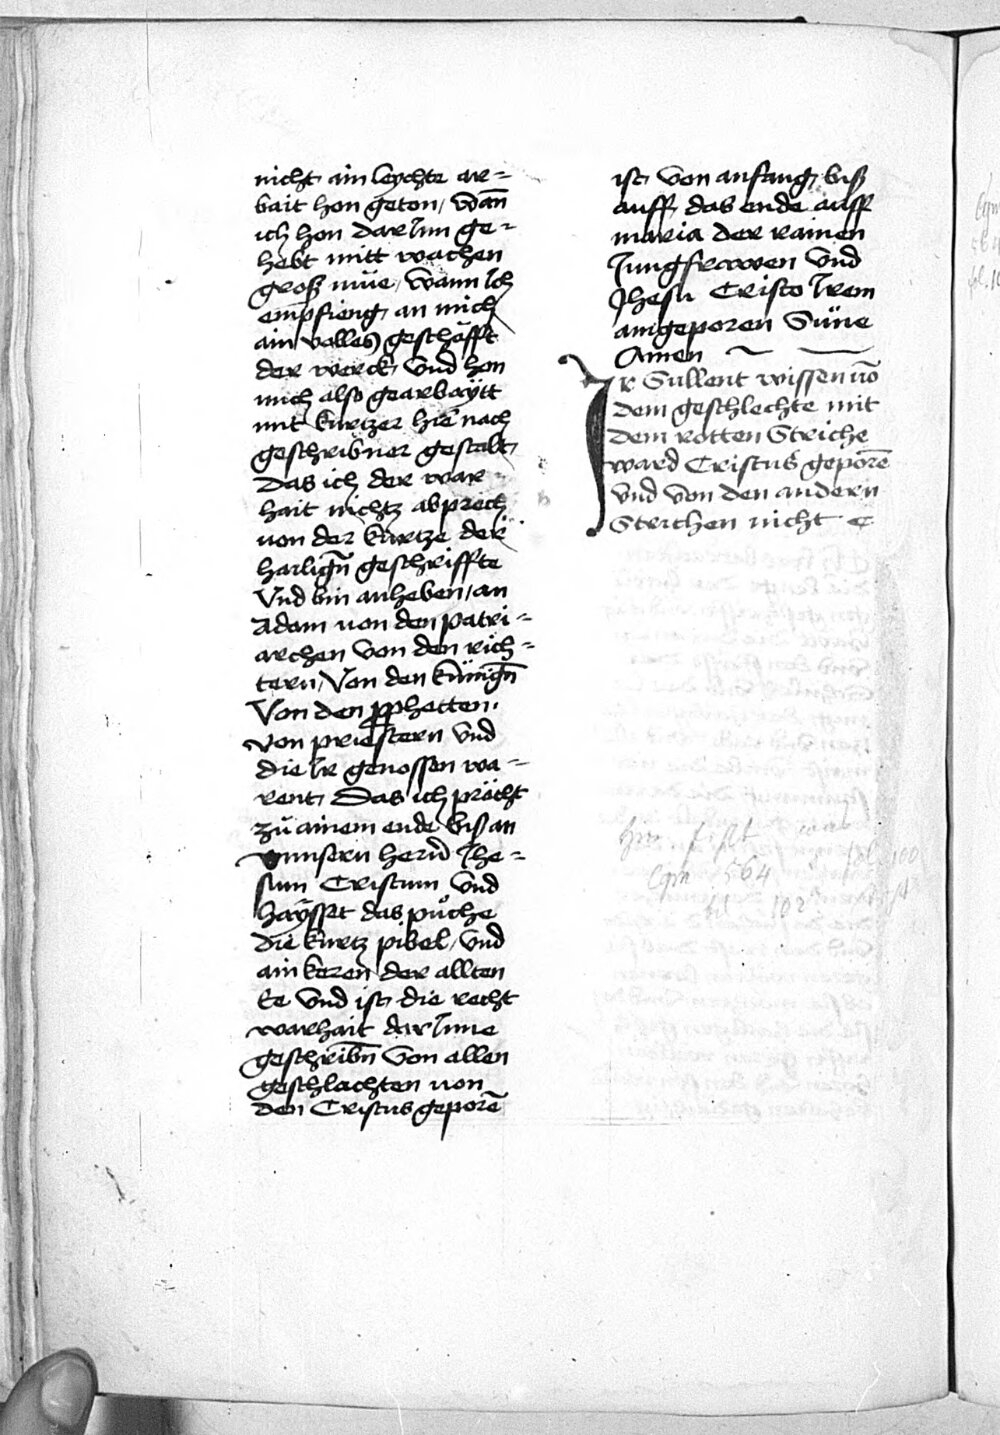 nicht ain leychte ar=
bait hon geton / wān
ich hon dar Inn ge=
hebt mitt wachen
groß müe / wann Ich
empfieng an mich
ain volles geschäfft
der werck und hon
mich also gearbaÿtt
mit kurtzer hie nach
geschribner gestalt
Das ich der war
hait nichtz abprech
von der kürtze der
hailigñ geschriffte
Vnd bin anheben / an
Adam von den patri=
archen von den rich=
tern / Von den künigñ
Von den ꝓphetten.
von priestern vnd
die Ir genossen wa=
rent Das ich prächt
zů ainem ende biß an
vnnsern herñ Ihe=
sum Cristum vnd
haÿsset das půche
die kurtz pibel / vnd
ain keren der allten
Ee vnd ist die recht
warhait dar Inne
geschribñ von allen
geschlächten von
den Cristus geporē
ist von anfang biß
auff das ende auff
maria der rainen
Jungfrowen vnd
Jhesu Cristo Irem
aingeporen Süne
Amen
Ir Sullent wissen vō
dem geschlechte mit
dem rotten Striche
ward Cristus geporē
vnd von den andern
Strichen nicht
fehlt
Cgm 564